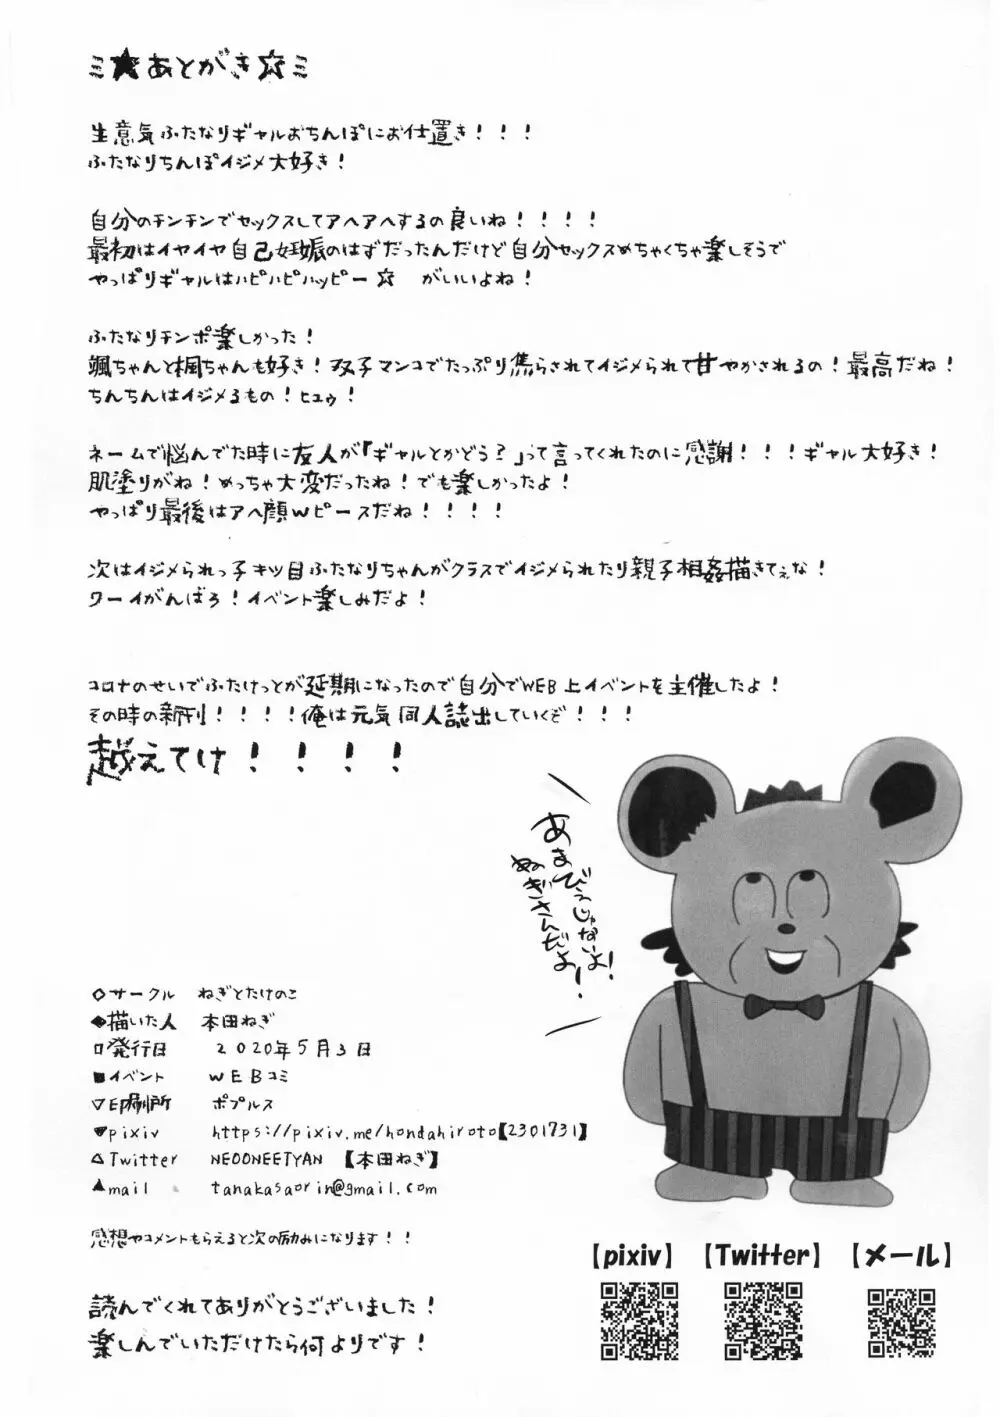 ミ★あとがき☆ミ
生意気ふたなりギャルおちんぽにお仕置き！！！
ふたなりちんぽイジメ大好き！
自分のチンチンでセックスしてアヘアヘするの良いね！！！！
最初はイヤイヤ自己妊娠のはずだったんだけど自分セックスめちゃくちゃ楽しそうで
やっぱりギャルはハピハピハッピー☆　がいいよね！
ふたなりチンポ楽しかった！
颯ちゃんと楓ちゃんも好き！双子マンコでたっぷり焦らされてイジメられて甘やかされるの！最高だね！
ちんちんはイジメるもの！ヒュゥ！
ネームで悩んでた時に友人が「ギャルとかどう？」って言ってくれたのに感謝！！！ギャル大好き！
肌塗りがね！めっちゃ大変だったね！でも楽しかったよ！
やっぱり最後はアヘ顔Wピースだね！！！！
次はイジメられっ子キツ目ふたなりちゃんがクラスでイジメられたり親子相姦描きてぇな！
ワーイがんばろ！イベント楽しみだよ！
コロナのせいでふたけっとが延期になったので自分でWEB上イベントを主催したよ！
その時の新刊！！！！俺は元気同人誌出していくぞ！！！
越えてけ！！！！
あまびえじゃないよ！
ねぎさんだよ！
◇サークル　ねぎとたけのこ
◆描いた人　本田ねぎ
□発行日　2020年5月3日
■イベント　WEBコミ
▽印刷所　ポプルス
▼pixiv　https://pixiv.me/hondahiroto【2301731】
△Twitter　NEOONEETYAN　【本田ねぎ】
▲mail　tanakasaorin@gmail.com
感想やコメントもらえると次の励みになります！！
読んでくれてありがとうございました！
楽しんでいただけたら何よりです！
【pixiv】【Twitter】【メール】